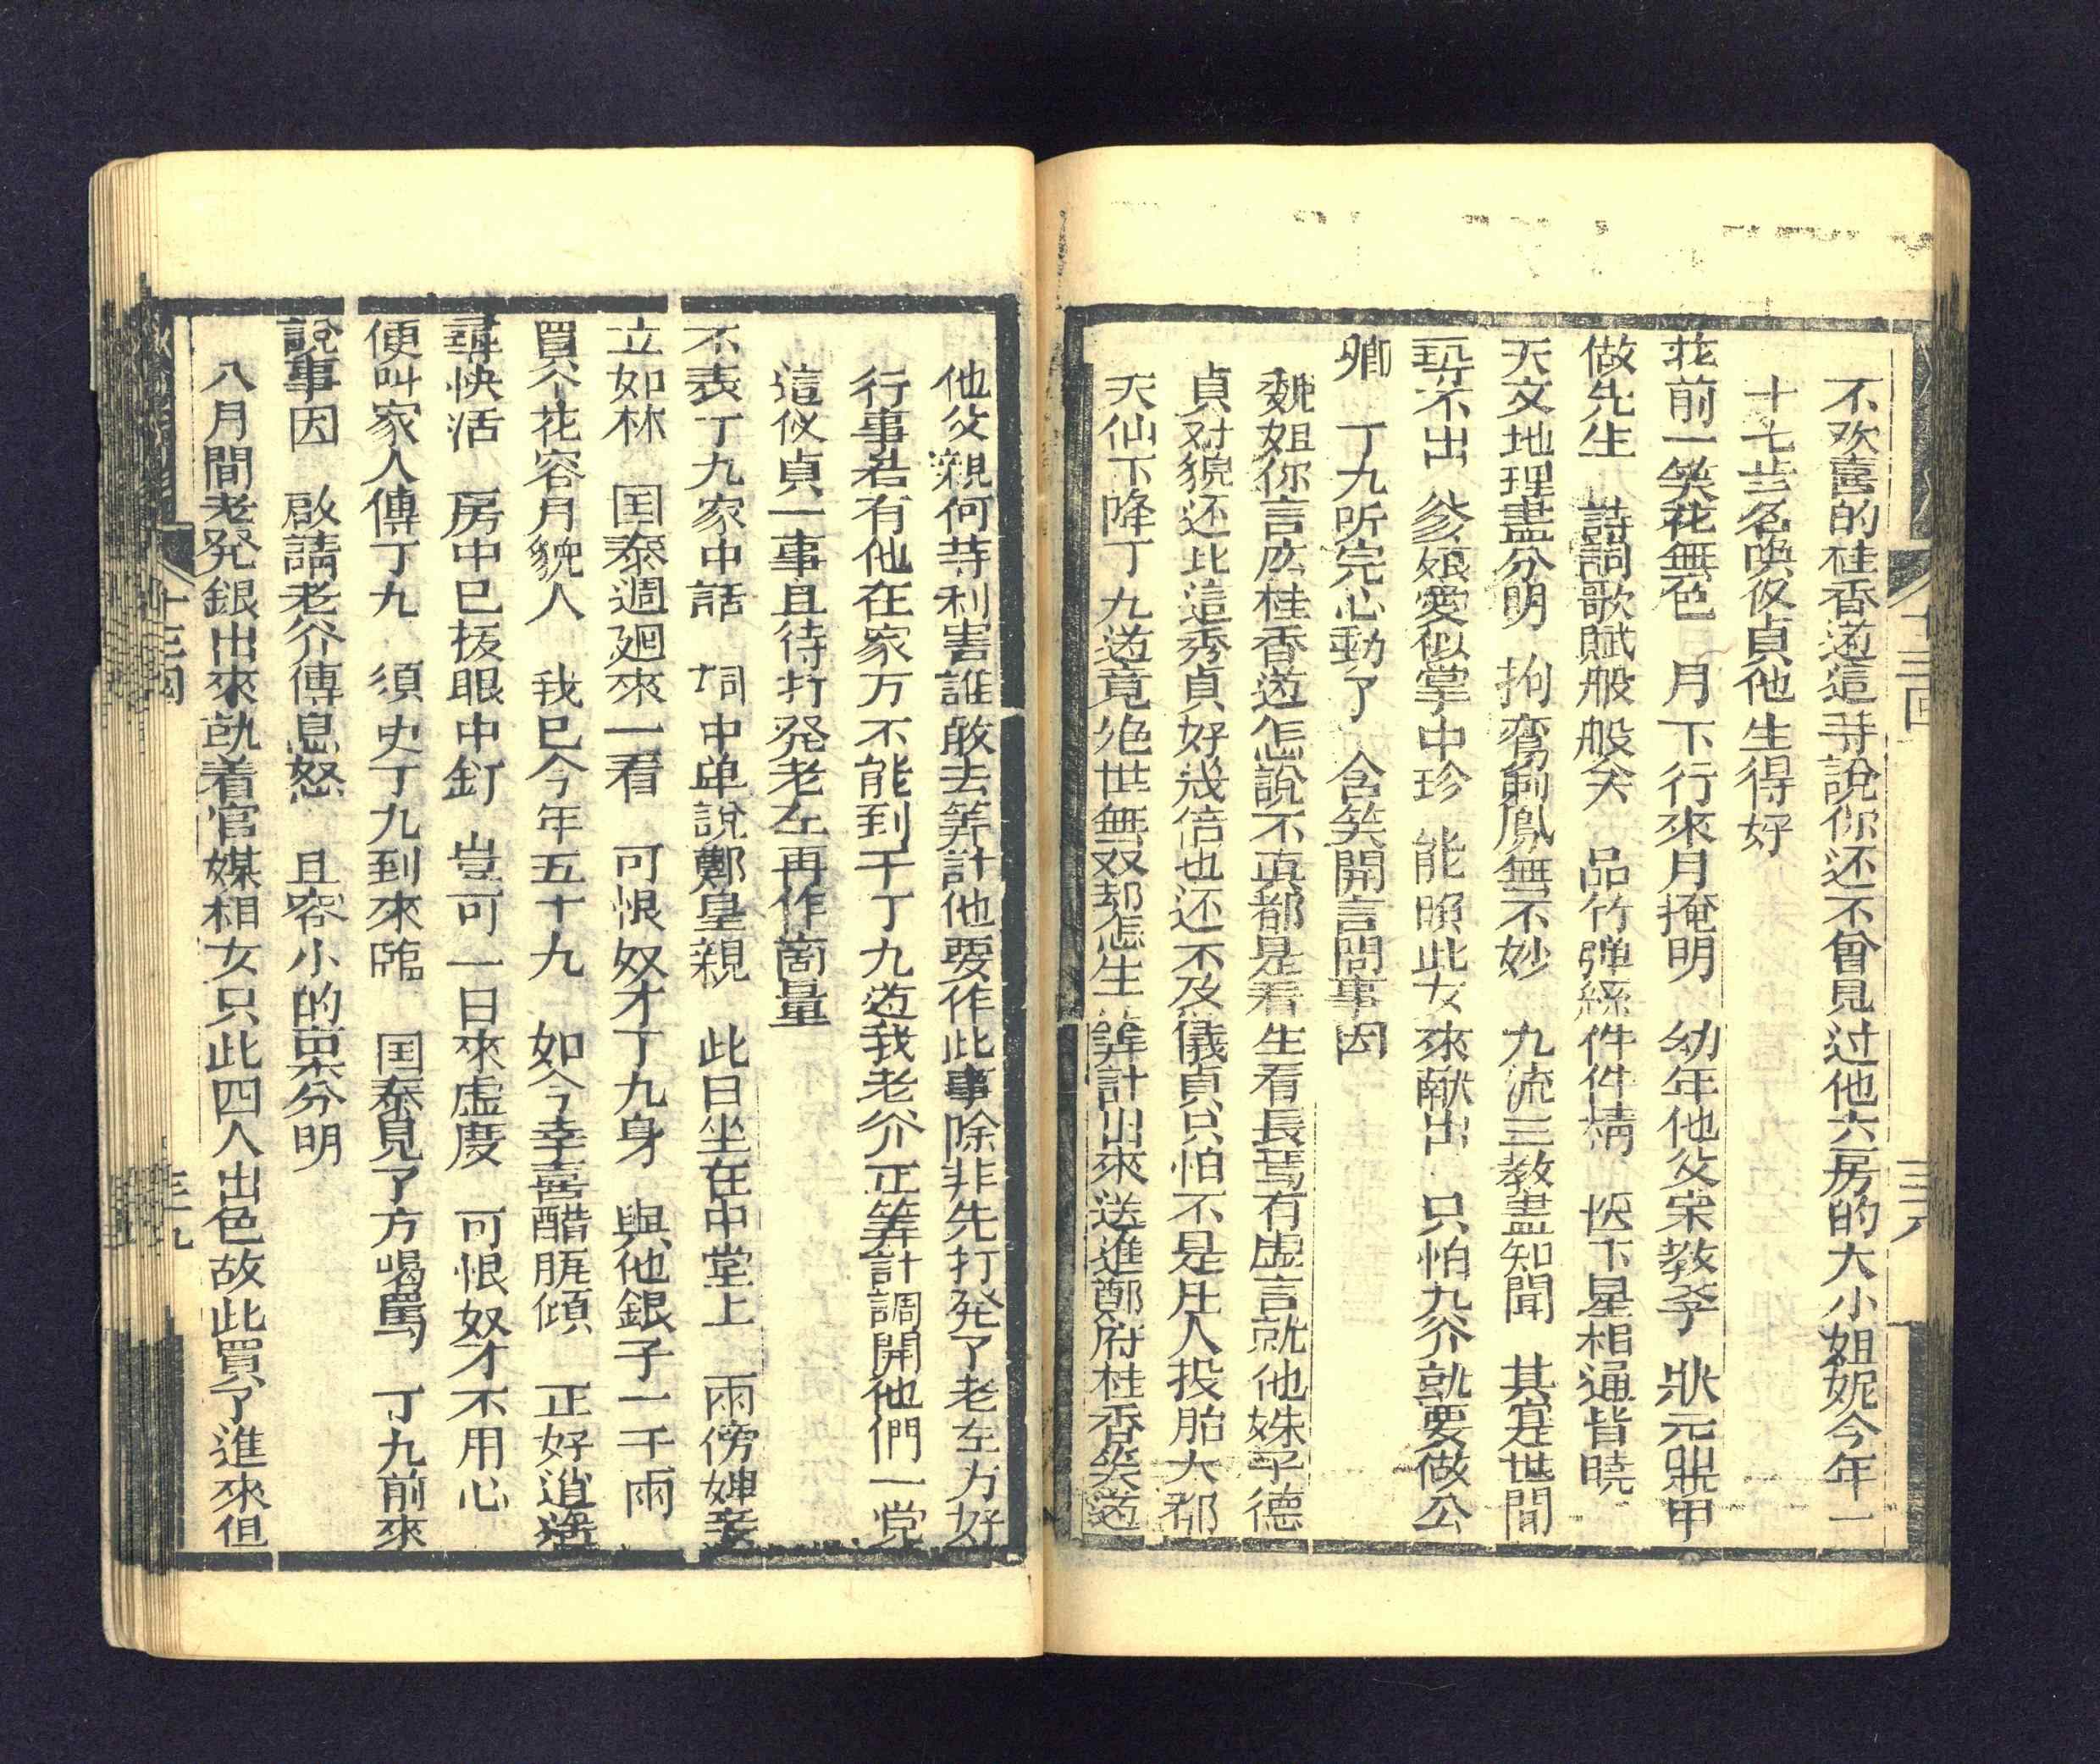 不欢喜的桂香道這等說你还不曾見过他六房的大小姐妮今年一
十七岁名喚仪貞他生得好
花前一笑花無色 月下行來月掩明 幼年他父亲教学 狀元鼎甲
做先生 詩詞歌賦般般会 品竹弹絲件件精 医卜星相通皆曉
天文地理盡分明 拘鸞刺鳳無不妙 九流三教盡知聞 其实世間
尋不出 爹娘愛似掌中珍 能照此女來献出 只怕九爷就要做公
卿 丁九听完心動了 含笑開言問事因
魏姐你言庅桂香道怎說不真都是看生看長焉有虚言就他妹子德
貞对貌还比這秀貞好幾倍也还不及儀貞只怕不是凡人投胎大都
天仙下降丁九道竟绝世無双却怎生筭計出來送進鄭府桂香笑道
他父親何等利害誰敢去筭計他要作此事除非先打発了老左方好
行事若有他在家万不能到手丁九道我老爷正筭計調開他們一党
這仪貞一事且待打発老左再作啇量
不表丁九家中話 詞中单說鄭皇親 此日坐在中堂上 兩傍婢妾
立如林 国泰週廻來一看 可恨奴才丁九身 與他銀子一千兩
買个花容月貌人 我已今年五十九 如今幸喜醋瓶傾 正好逍遙
尋快活 房中已拔眼中釘 豈可一日來虚度 可恨奴才不用心
便叫家人傳丁九 須史丁九到來臨 国泰見了方喝罵 丁九前來
說事因 啟請老爷傳息怒 且容小的禀分明
八月間老発銀出來訊着官媒相女只此四人出色故此買了進來但
十三回
三八
十三回
三九